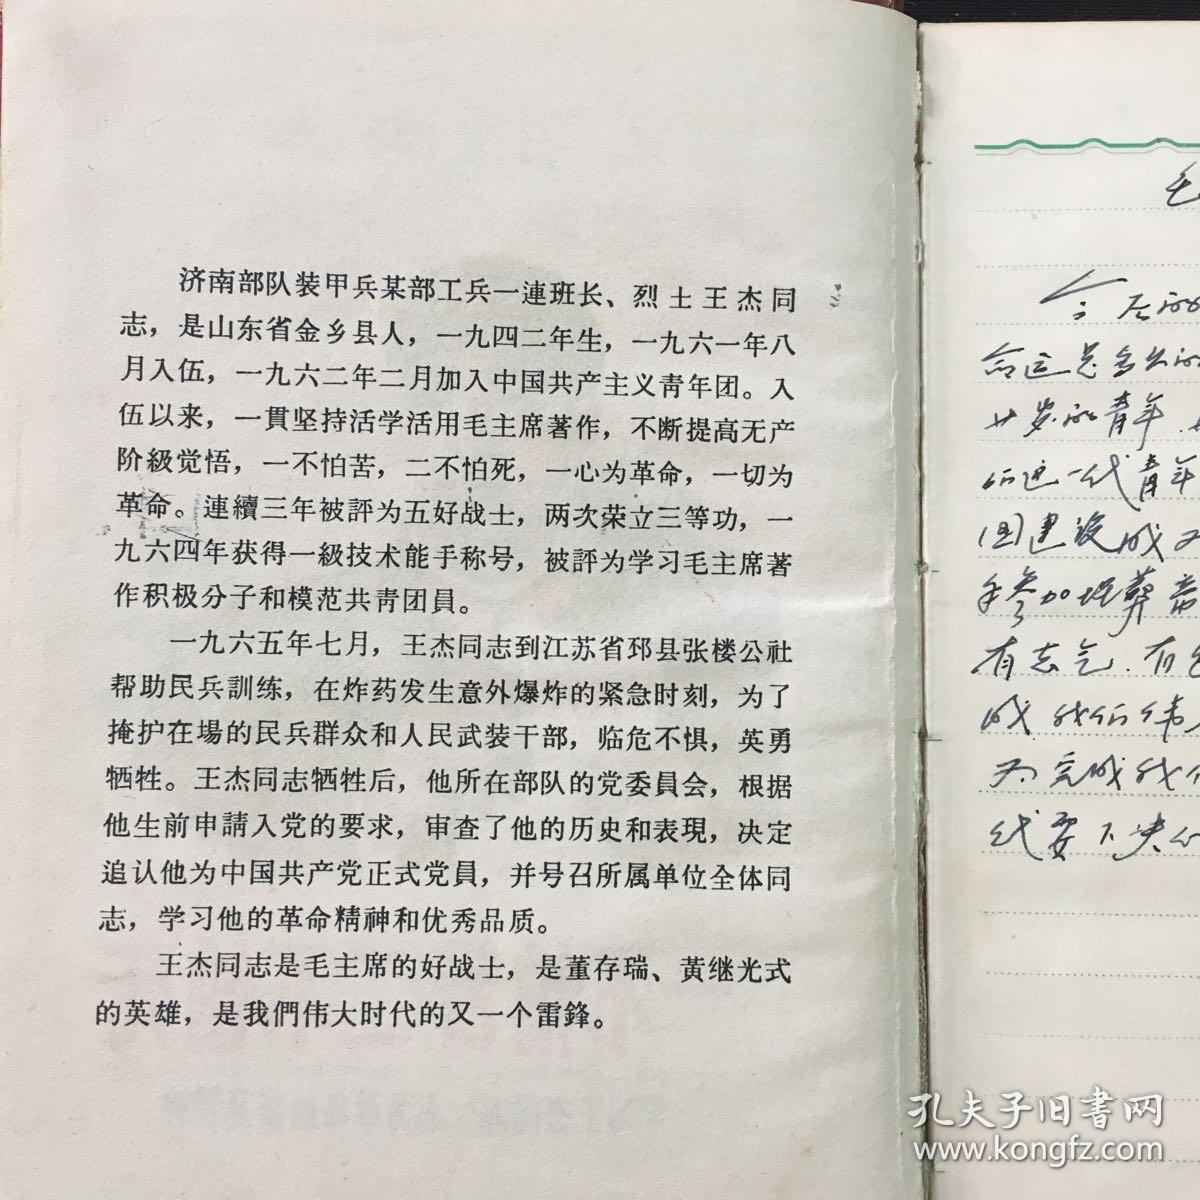 济南部队装甲兵某部工兵一連班长、烈士王杰同
志，是山东省金乡县人，一九四二年生，一九六一年八
月入伍，一九六二年二月加入中国共产主义靑年团。入
伍以来，一貫坚持活学活用毛主席著作，不断提高无产
阶級觉悟，一不怕苦，二不怕死，一心为革命，一切为
革命。連續三年被評为五好战士，两次荣立三等功，一
九六四年获得一級技术能手称号，被評为学习毛主席著
作积极分子和模范共靑团員。
一九六五年七月，王杰同志到江苏省邳县张楼公社
帮助民兵訓练，在炸药发生意外爆炸的紧急时刻，为了
掩护在場的民兵群众和人民武装干部，临危不惧，英勇
牺牲。王杰同志牺牲后，他所在部队的党委員会，根据
他生前申請入党的要求，审查了他的历史和表現，决定
追认他为中国共产党正式党員，并号召所属单位全体同
志，学习他的革命精神和优秀品质。
王杰同志是毛主席的好战士，是董存瑞、黃继光式
的英雄，是我們伟大时代的又一个雷鋒。
毛
今后的
命运总
廿岁的青年
们这一代青年
国建设成为
参加埋葬帝
有志气.有
成我们伟
为完成我们
代要下决
孔夫子旧书网
www.kongfz.com